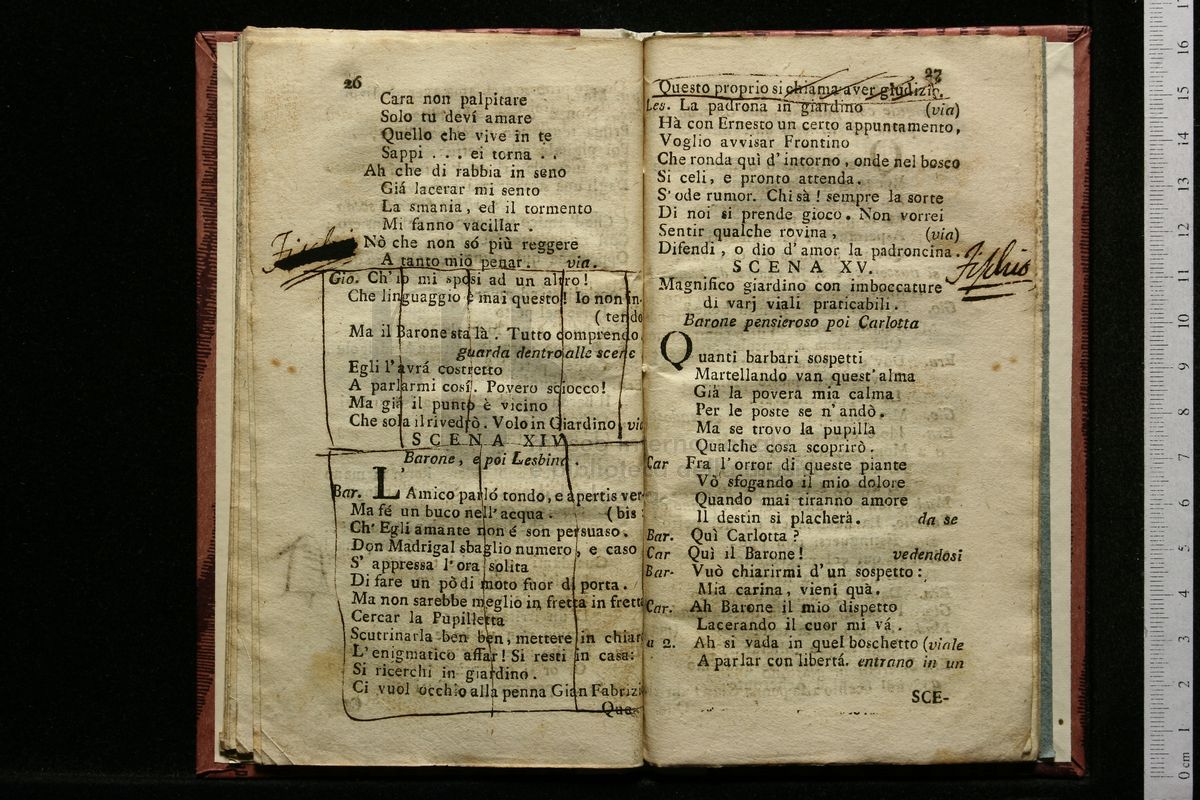 26
Cara non palpitare
Solo tu devi amare
Quello che vive in te
Sappi . . . ei torna . .
Ah che di rabbia in seno
Giá lacerar mi sento
La smania, ed il tormento
Mi fanno vacillar .
Nò che non só più reggere
A tanto mio penar. via.
Gio. Ch' io mi sposi ad un altro!
Che linguaggio è mai questo! Io non in-
( tendo
Ma il Barone sta là . Tutto comprendo
guarda dentro alle scene
Egli l'avrá costretto
A parlarmi cosí. Povero sciocco!
Ma giá il punto è vicino
Che sola il rivedrò. Volo in Giardino via
SCENA XIV.
Barone, e poi Lesbina .
Bar. L'Amico parló tondo, e apertis ver
Ma fé un buco nell'acqua . ( bis
Ch' Egli amante non é son persuaso.
Don Madrigal sbaglio numero, e caso
S' appressa l'ora solita
Di fare un pò di moto fuor di porta.
Ma non sarebbe meglio in fretta in frett
Cercar la Pupilletta
Scutrinarla ben ben, mettere in chiar
L'enigmatico affar! Si resti in casa:
Si ricerchi in giardino.
Ci vuol occhio alla penna Gian Fabrizi
Que
27
Questo proprio si chiama aver giudizio.
Les. La padrona in giardino (via)
Hà con Ernesto un certo appuntamento,
Voglio avvisar Frontino
Che ronda quì d'intorno, onde nel bosco
Si celi, e pronto attenda.
S'ode rumor. Chi sà! sempre la sorte
Di noi si prende gioco. Non vorrei
Sentir qualche rovina, (via)
Difendi, o dio d'amor la padroncina.
Fischio
SCENA XV.
Magnifico giardino con imboccature
di varj viali praticabili.
Barone pensieroso poi Carlotta
Quanti barbari sospetti
Martellando van quest'alma
Già la povera mia calma
Per le poste se n'andò.
Ma se trovo la pupilla
Qualche cosa scoprirò.
Car Fra l'orror di queste piante
Vò sfogando il mio dolore
Quando mai tiranno amore
Il destin si placherà. da se
Bar. Quì Carlotta?
Car Quì il Barone! vedendosi
Bar- Vuò chiarirmi d'un sospetto:
Mia carina, vieni quà.
Car. Ah Barone il mio dispetto
Lacerando il cuor mi vá.
a 2. Ah si vada in quel boschetto (viale
A parlar con libertá. entrano in un
SCE-